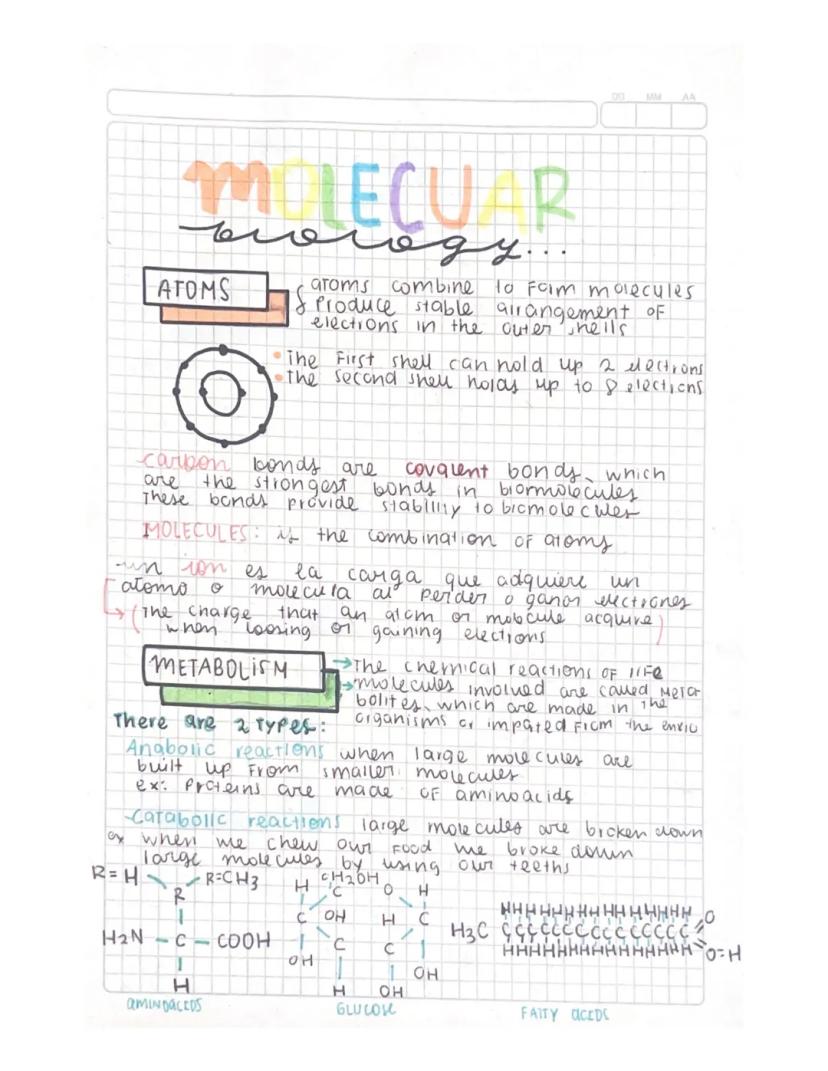 DD MM AA
MOLECUAR
biology...
ATOMS
atoms combine to form molecules
& Produce stable arrangement OF
electrons in the outer shells
• The First shell can hold up 2 electrons
• The second shell holds up to 8 electrons
carbon bonds are covalent bonds, which
are the strongest bonds in biormolecules
These bonds provide stability to biomolecules
MOLECULES: is the combination OF atoms
-un ion es la carga que adquiere un
atomo o molecula al perder o ganar electrones
→ (The charge that an atom or molecule acquire)
when loosing or gaining electrons
METABOLISM
→ The chemical reactions OF liFe
→ molecules involved are called Meta-
bolites, which are made in the
organisms or impated From the enviu
There are 2 Types:
Anabolic reactions when large molecules are
built up From smaller molecules
ex: Proteins are made OF aminoacids
-Catabolic reactions large molecules are broken down
ex when we chew our Food we broke down
large molecules by using our teeths
R=H R=CH3
R
H2N - C - COOH
H
AMINOACIDS
H CH2OH O H
C
C OH H C
C C
OH OH
H OH
GLUCOSE
HHHHHHHHHHHHHH O
H3C CCCCCCCCCCCCCC
HHHHHHHHHHHHHH O=H
FATTY ACIDS